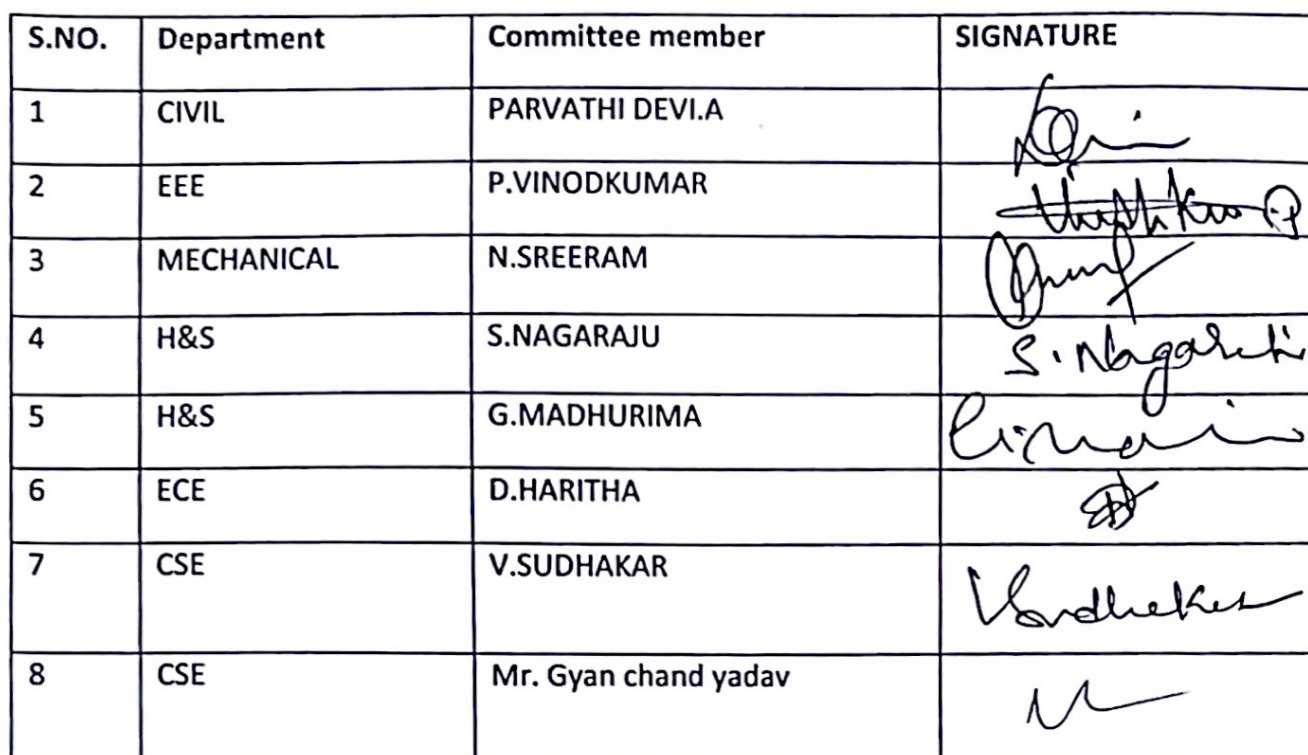 S.NO. Department Committee member SIGNATURE
1 CIVIL PARVATHI DEVI.A
2 EEE P.VINODKUMAR
3 MECHANICAL N.SREERAM
4 H&S S.NAGARAJU S. Nagaraju
5 H&S G.MADHURIMA
6 ECE D.HARITHA
7 CSE V.SUDHAKAR
8 CSE Mr. Gyan chand yadav